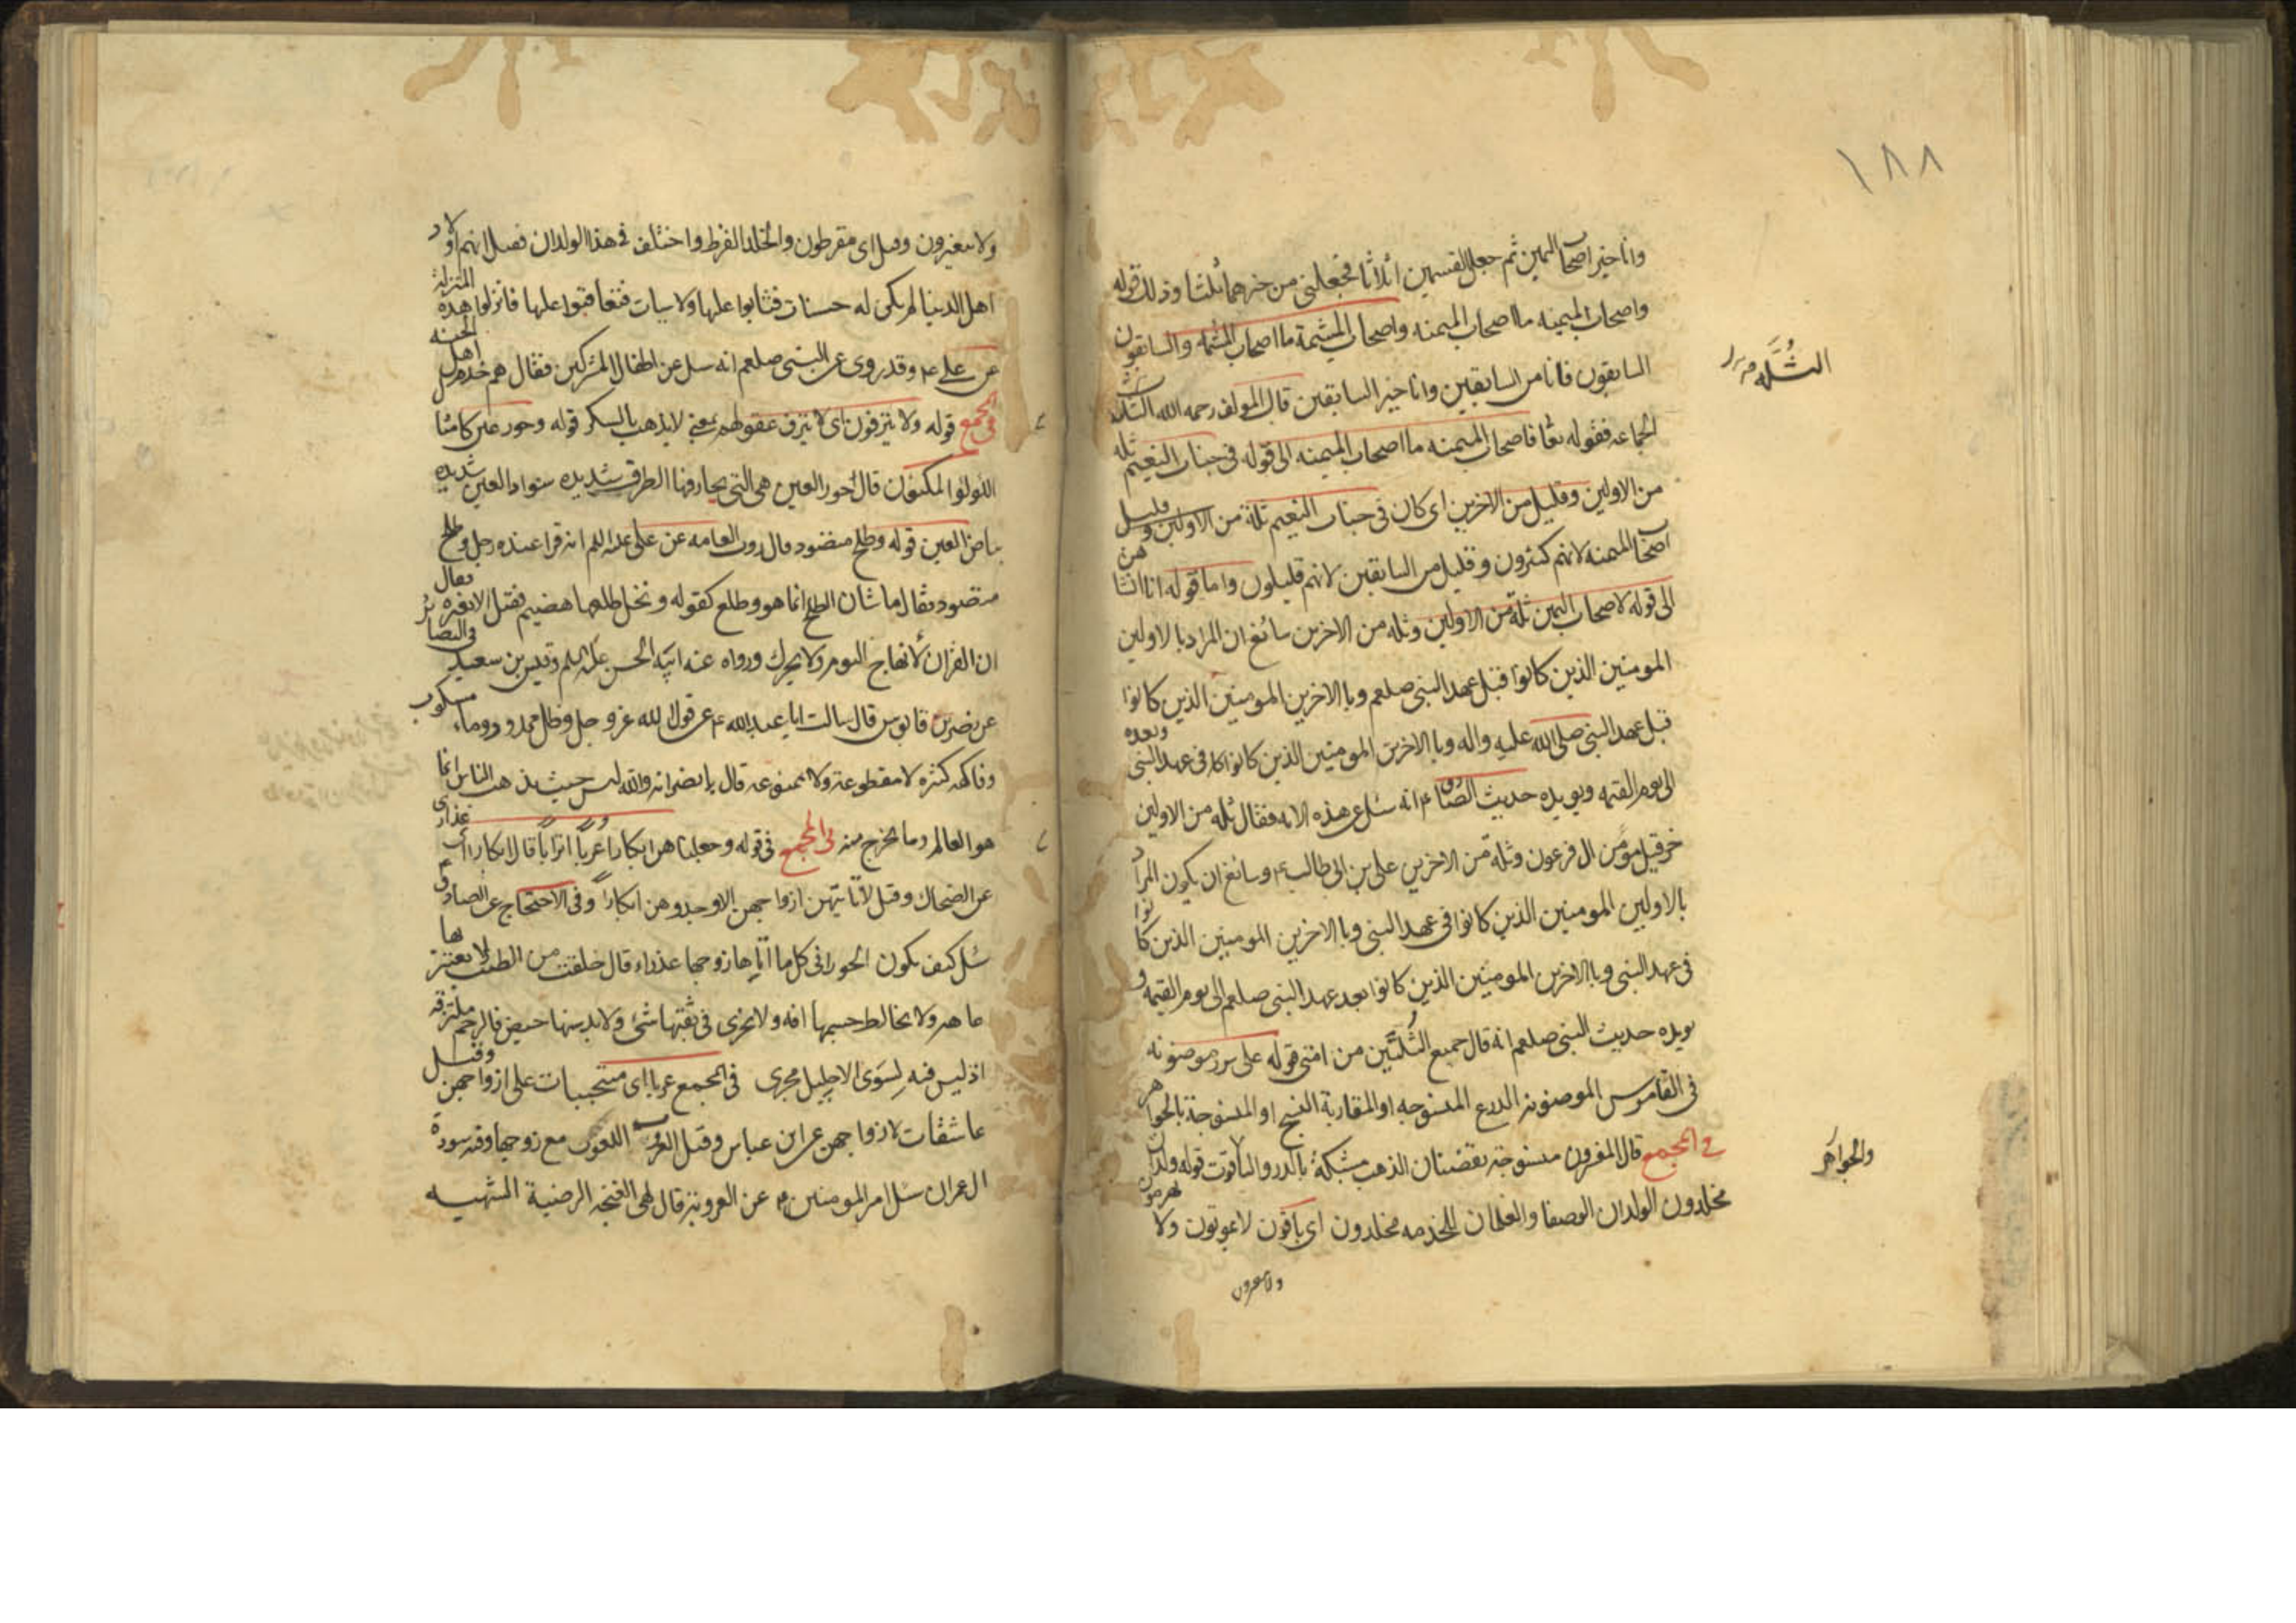 ١٨٨
وانا خير اصحاب اليمين ثم جعل القسمين اثلاثا فجعلنى من خيرهما ثلثا وذلك قوله
واصحاب الميمنه ما اصحاب الميمنه واصحاب المشئمة ما اصحاب المشئمه والسابقون
السابقون فانا من السابقين وانا خير السابقين قال المولف رحمه الله الثلة
الثُلَّه
الجماعه فقوله تعا فاصحاب الميمنه ما اصحاب الميمنه الى قوله فى جنات النعيم ثله
من الاولين وقليل من الاخرين اى كان فى جنات النعيم ثلة من الاولين وقليل من
اصحاب الميمنه لانهم كثيرون وقليل من السابقين لانهم قليلون واما قوله انا انشا
الى قوله لاصحاب اليمين ثلة من الاولين وثله من الاخرين سائغ ان المراد بالاولين
المومنين الذين كانوا قبل عهد النبى صلعم وبالاخرين المومنين الذين كانوا
قبل عهد النبى صلى الله عليه واله وبالاخرين المومنين الذين كانوا فى عهد النبى وبعده
الى يوم القيمه ويويده حديث الصادق ع انه سئل عن هذه الايه فقال ثله من الاولين
حزقيل مومن ال فرعون وثلة من الاخرين على بن ابى طالب ع وسائغ ان يكون المراد
بالاولين المومنين الذين كانوا فى عهد النبى وبالاخرين المومنين الذين كانوا
فى عهد النبى وبالاخرين المومنين الذين كانوا بعد عهد النبى صلعم الى يوم القيمه و
يويده حديث النبى صلعم انه قال جميع الثُلَّتين من امتى قوله على سرر موضونه
فى القاموس الموضونه الدرع المنسوجه او المقاربة النسج او المنسوجة بالجواهر
والجواهر
فى المجمع قال المفسرون منسوجة بقضبان الذهب مشبكة بالدر والياقوت قوله ولدان
مخلدون الولدان الوصفا والغلمان للخدمه مخلدون اى باقون لا يموتون ولا يهرمون
ولا يتغيرون
ولا يتغيرون وقيل اى مقرطون والخلد القرط واختلف فى هذا الولدان فقيل انهم اولاد
اهل الدينا لم يكن له حسنات فيثابوا عليها ولا سيات فيعاقبوا عليها فانزلوا هذه المنزلة
عن على ع وقد روى عن النبى صلعم انه سئل عن اطفال المشركين فقال هم خدم اهل الجنه
فى المجمع قوله ولا ينزفون اى لا ينزف عقولهم بمعنى لا يذهب بالسكر قوله وحور عين كامثا
اللولوا المكنون قال الحور العين هى التى يحار فيها الطرف شديده سواد العين شديده
بياض العين قوله وطلح منضود قال روت العامه عن على عليه السلم انه قرا عنده رجل وطلح
منضود فقال ما شان الطلح انما هو وطلع كقوله ونخل طلعها هضيم فقيل الا تغيره فقال
ان القران لا يهاج اليوم ولا يحرك ورواه عنه ابنه الحسن عليه السلم وقيس بن سعيد فى البصائر
عن نضر بن قابوس قال سالت ابا عبد الله ع عن قول الله عز وجل وظل ممدود وماء مسكوب
وفاكهه كثيره لا مقطوعة ولا ممنوعه قال يا نضر انه والله ليس حيث يذهب الناس انما
هو العالم وما يخرج منه فى المجمع فى قوله وجعلناهن ابكارا عُرباً اتراباً قال ابكارا اى عذارى
عن الضحاك وقيل لا ياتيهن ازواجهن الا وجدوهن ابكاراً وفى الاحتجاج عن الصادق ع
سئل كيف يكون الحورا فى كل ما اتاها زوجها عذراء قال خلقت من الطيب لا يعتريها
عاهه ولا يخالط جسمها افه ولا يجرى فى ثقبها شئ ولا يدنسها حيض فالرحم ملتزقه
اذ ليس فيه لسوى الاحليل مجرى فى المجمع عربا اى متحببات على ازواجهن وقيل
عاشقات لازواجهن عن ابن عباس وقيل العروب اللعوب مع زوجها وفى سورة
ال عمران سئل امير المومنين ع عن العروبة قال هى الغنجه الرضية الشهيه